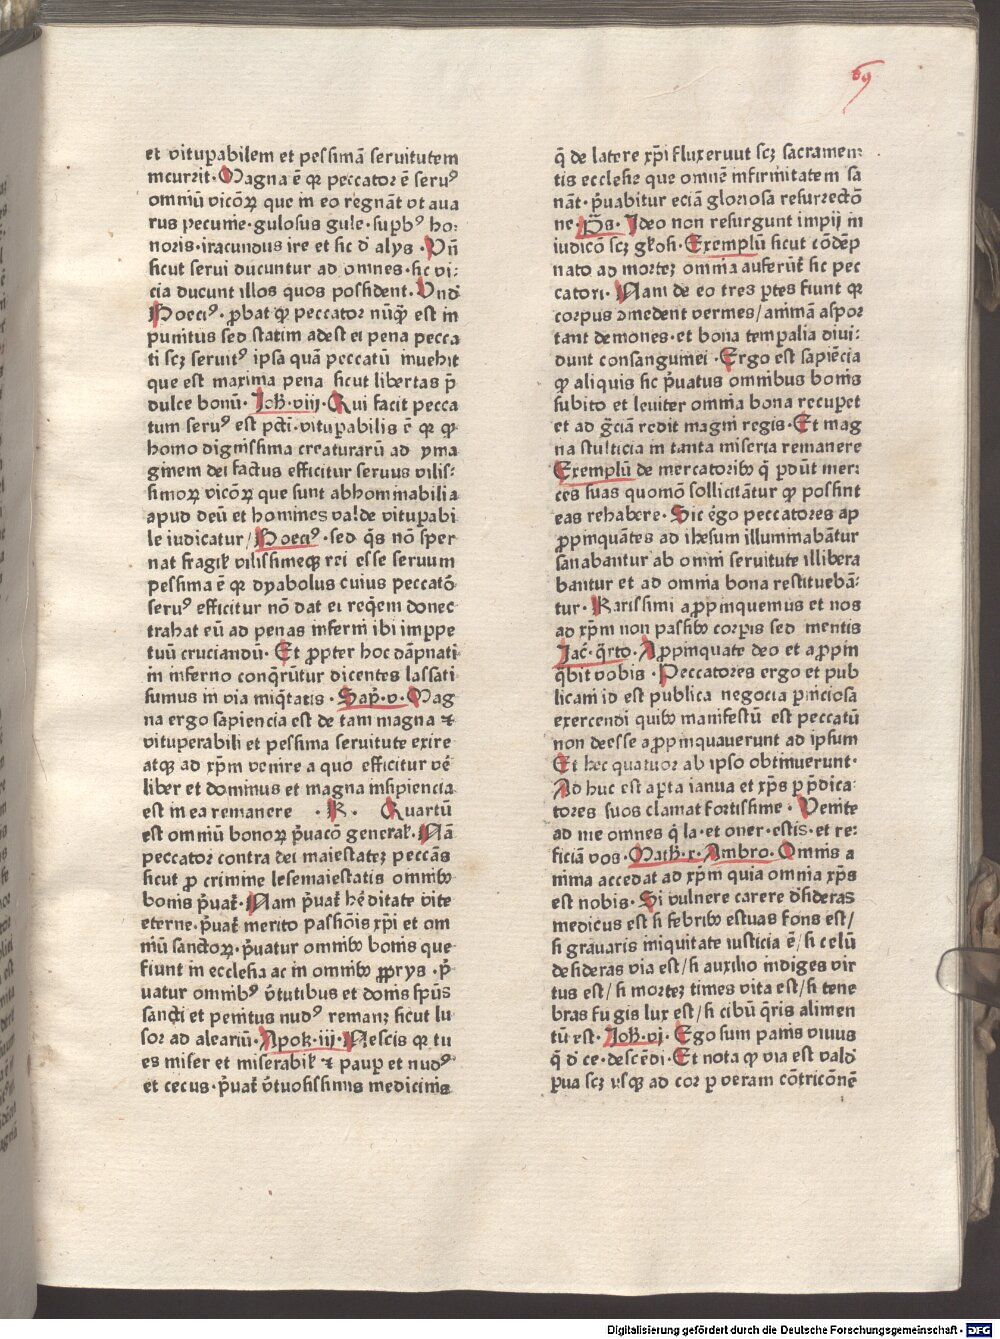 69
et vitup̄abilem et pessimā seruitutem
incurrit·Magna ē qꝛ peccator ē seruꝰ
omniū vicōꝝ que in eo regnāt vt aua
rus pecunie·gulosus gule·suꝑbꝰ ho⸗
noris·iracundus ire et sic d̄ alys·Vn̄
sicut serui ducuntur ad omnes·sic vi⸗
cia ducunt illos quos possident·Vnd̄
Boeciꝰ·ꝓbat ꝙ peccator nūq̄ est in
punitus sed statim adest ei pena pecca
ti scꝫ seruitꝰ ipsa quā peccatū inuehit
que est maxima pena sicut libertas p̄
dulce bonū·Joh̄·viij·Qui facit pecca
tum seruꝰ est pcti·vituꝑabilis ē qꝛ ꝙ
homo dignissima creaturarū ad yma
ginem dei factus efficitur seruus vilis⸗
simoꝝ vicōꝝ que sunt abhominabilia
apud deū et homines valde vituꝑabi
le iudicatur/Boeciꝰ·sed q̄s nō sper
nat fragil̄ vilissimeqꝫ rei esse seruum
pessima ē qꝛ dyabolus cuius peccatō
seruꝰ efficitur nō dat ei req̄em donec
trahat eū ad penas inferni ibi imꝑpe
tuū cruciandū·Et ꝓpter hoc dāpnati
in inferno conq̄rūtur dicentes lassati
sumus in via iniq̄tatis·Sap̄·v·Mag
na ergo sapiencia est de tam magna ⁊
vituperabili et pessima seruitute exire
atqꝫ ad xp̄m venire a quo efficitur vē
liber et dominus et magna insipiencia
est in ea remanere ·R· Quartū
est omniū bonoꝝ p̄uacō general̄·Nā
peccator contra dei maiestateꝫ peccās
sicut ꝓ crimine lesemaiestatis omnibꝰ
bonis p̄uat̄·Nam p̄uat̄ h̄editate vite
eterne·p̄uat̄ merito passiōis xp̄i et om
niū sanctoꝝ·p̄uatur omnibꝰ bonis que
fiunt in ecclesia ac in omnibꝰ ꝓprys·p̄
uatur omnibꝰ v̄tutibus et donis sp̄us
sancti et penitus nudꝰ remanꝫ sicut lu
sor ad aleariū·Apok·iij·Nescis qꝛ tu
es miser et miserabil̄ ⁊ paup et nudꝰ
et cecus·p̄uat̄ v̄tuosissimis medicinis
q̄ de latere xp̄i fluxeruut scꝫ sacramen⸗
tis ecclesie que omnē infirmitatem sa
nāt·p̄uabitur eciā gloriosa resurrectō
ne·p̄s·Ideo non resurgunt impij in
iudicō scꝫ gl̄osi·Exemplū sicut cōdēp
nato ad morteꝫ omnia aufer̄t̄ sic pec
catori·Nam de eo tres ꝑtes fiunt qꝛ
corpus ꝯmedent vermes/animā aspor
tant demones·et bona tempalia diui⸗
dunt consanguinei·Ergo est sapiēcia
ꝙ aliquis sic p̄uatus omnibus bonis
subito et leuiter omnia bona recupet
et ad gr̄ciā redit magni regis·Et mag
na stulticia in tanta miseria remanere
Exemplū de mercatoribꝰ q̄ ꝑdūt mer⸗
ces suas quomō sollicitātur ꝙ possint
eas rehabere·Sic ēgo peccatores ap
ꝓpinquātes ad ihesum illuminabātur
sanabantur ab omni seruitute illibera
bantur et ad omnia bona restituebā⸗
tur·Karissimi aꝓpinquemus et nos
ad xp̄m non passibꝰ corꝑis sed mentis
Jac̄·q̄rto·Aꝓpinquate deo et aꝓpin
q̄bit vobis·Peccatores ergo et pub
licani id est publica negocia ꝑniciosa
exercendi quibꝰ manifestū est peccatū
non deesse aꝓpinquauerunt ad ipsum
Et hec quatuor ab ipso obtinuerunt·
Ad huc est aꝑta ianua et xp̄s ꝑ p̄dica⸗
tores suos clamat fortissime·Venite
ad me omnes q̄ la·et oner·estis·et re⸗
ficiā vos·Math̄·x·Ambro·Omnis a
nima accedat ad xp̄m quia omnia xp̄s
est nobis·Si vulnere carere d̄sideras
medicus est si febribꝰ estuas fons est/
si grāuaris iniquitate iusticia ē/si celū
desideras via est/si auxilio indiges vir
tus est/si morteꝫ times vita est/si tene
bras fugis lux est/si cibū q̄ris alimen
tū est·Joh̄·vj·Ego sum panis viuus
q̄ d̄ ce·descēdi·Et nota ꝙ via est vald̄
ꝑua scꝫ vsqꝫ ad cor ꝑ veram cōtricōnē
Digitalisierung gefördert durch die Deutsche Forschungsgemeinschaft - DFG